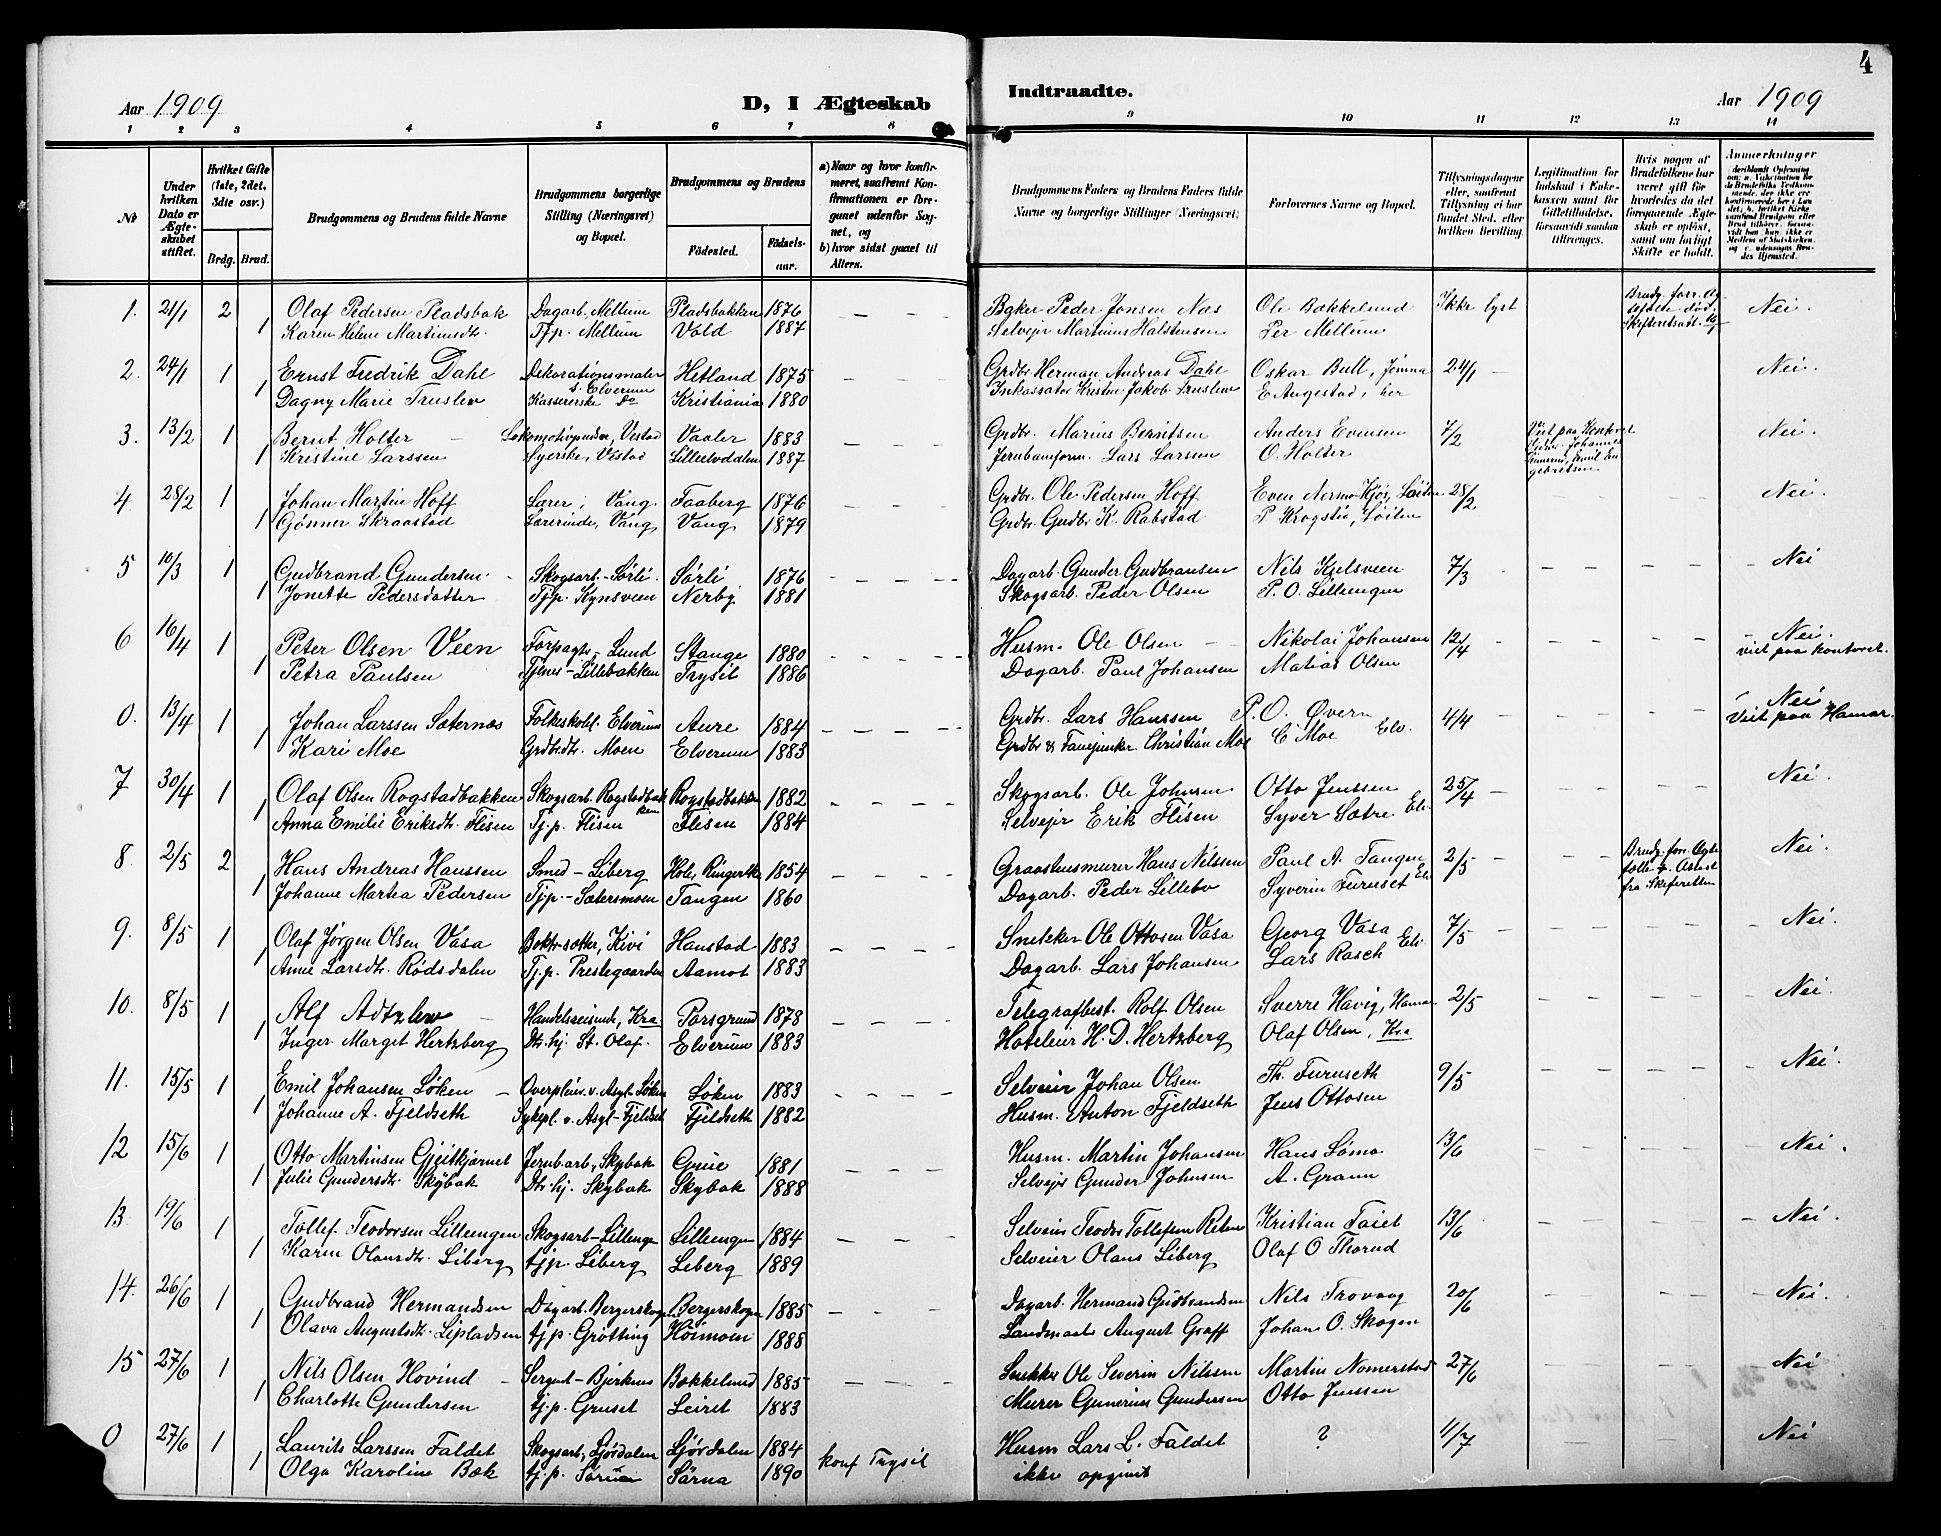 4
Aar 1909
D, I Ægteskab
Indtraadte.
Aar 1909
1 2 3 4 5 6 7 8 9 10 11 12 13 14
No
Under hvilken Dato er Ægteskabet stiftet.
Hvilket Gifte (1ste, 2det, 3die osv.)
Brdg. Brud.
Brudgommens og Brudens fulde Navne
Brudgommens borgerlige Stilling (Næringsvei) og Bopæl.
Brudgommens og Brudens
Födested.
Födselsaar.
a) Naar og hvor konfirmeret, saafremt Konfirmationen er foregaaet udenfor Sognet, og
b) hvor sidst gaaet til Alters.
Brudgommens Faders og Brudens Faders fulde Navne og borgerlige Stillinger (Næringsvei)
Forlovernes Navne og Bopæl.
Tillysningsdagene eller, saafremt Tillysning ei har fundet Sted, efter hvilken Bevilling.
Legitimation for Indskud i Enkekassen samt for Giftetilladelse, forsaavidt saadan tiltrænges.
Hvis nogen af Brudefolkene har været gift før hvorledes da det foregaaende Ægteskab er opløst, samt om lovligt Skifte er holdt.
Anmerkninger
1. 21/1 2 Olaf Pedersen Pladsbak Dagarb. Mellum Pladsbakken 1876 Bøker Peder Jonsen Næs Ole Bækkelund Ikke lyst Nei.
1 Karen Helene Martinusdtr. Tjp. Mellum Vold 1887 Selveir Martinius Halstensen Per Mellum
2. 24/1 1 Ernst Fredrik Dahl Dekorationsmaler Hetland 1875 Grdbr Herman Andreas Dahl Oskar Bull, Jømna 24/1 Nei.
1 Dagny Marie Truslew Kassererske Do Elverum Kristiania 1880 Inkassator Kristen Jakob Truslew E Augestad, her
3. 13/2 1 Bernt Holter Lokomotivpudser, Vestad Vaaler 1883 Grdbr. Marius Berntsen Anders Evensen 7/2 Nei.
1 Kristine Larssen Syerske, Vestad Lilleelvdalen 1887 Jernbaneform. Lars Larssen O. Holter
4 28/2 1 Johan Martin Hoff Lærer, Vang. Faaberg 1876 Grdbr. Ole Pedersen Hoff Even Nermo Kjos, Løiten 28/2 Nei.
1 Gønner Skraastad Lærerinde, Vang Vang 1879 Grdbr. Gudbr K. Rabstad P Krogstie, Løiten
5 10/3 1 Gudbrand Gundersen Skogsarb. - Sørli. Sørli 1876 Dagarb. Gunder Gudbransen Nils Kjelsveen 7/3 Nei
1 Jonette Pedersdatter Tjp. Kynsveen Nerby 1881 Skogsarb. Peder Olsen P. O. Lilleengen
6 16/4 1 Peter Olsen Veen Forpagtr - Lund Stange 1880 Husm. Ole Olsen Nikolai Johansen 12/4 Nei.
1 Petra Paulsen Tjenes - Lillebakken Trysil 1886 Dagarb. Paul Johansen Matias Olsen viet paa kontoret.
0. 13/4 1 Johan Larssen Sæternæs Folkeskoll. Elverum Aure 1884 Grdbr. Lars Hanssen P. O. Øvern 4/4 Nei
1 Kari Moe Grdbrdtr. Moen Elverum 1883 Grdbr & Fanejunker Christian Moe C Moe Elv. Viet paa Hamar.
7 30/4 1 Olaf Olsen Rogstadbakken Skogsarb. Rogstadbakken Rogstadbakken 1882 Skogsarb. Ole Johnsen Otto Jenssen 25/4 Nei.
1 Anna Emilie Eriksdtr. Flisen Tj.p. Flisen Flisen 1884 Selveir Erik Flisen Syver Sætre Elv.
8 2/5 2 Hans Andreas Hanssen Smed - Liberg Hole, Ringerike 1854 Graastensmurer Hans Nilssen Paul A. Tangen 2/5 Nei.
1 Johanne Martea Pedersen Tjp. - Sætersmoen Tangen 1860 Dagarb. Peder Lillebo Syverin Furuset Elv.
9. 8/5 1 Olaf Jørgen Olsen Vasa Boktr.sætter, Kivi Hanstad 1883 Snekker Ole Ottosen Vasa Georg Vasa 7/5 Nei.
1 Anne Larsdtr. Rødsdalen Tj.p. Prestegaarden Aamot 1883 Dagarb. Lars Johansen Lars Rasch Elv.
10. 8/5 1 Alf Adtzlew Handelsreisende, Kra Porsgrund 1878 Telegrafbest. Rolf Olsen Sverre Havig, Hamar 2/5 Nei.
1 Inger Marget Hertzberg Dtr. hj. St. Olaf. Elverum 1883 Hoteleier H. D. Hertzberg Olaf Olsen, Kra
11. 15/5 1 Emil Johansen Løken Overpleier v. Asyl. Løken Løken 1883 Selveier Johan Olsen Th. Furuseth 9/5 Nei.
1 Johanne A. Fjeldseth Sykepl. v. Asyl - Fjeldset Fjeldseth 1882 Husm. Anton Fjeldseth Jens Ottosen
12 15/6 1 Otto Martinsen Gjeitkjærnet Jernb.arb, Skybak Grue 1881 Husm. Martin Johansen Hans Lømo 13/6 Nei.
1 Julie Gundersdtr. Skybak Dtr. hj. Skybak Skybak 1888 Selveir Gunder Johnsen A. Grann
13. 19/6 1 Tollef. Teodorsen Lilleengen Skogsarb - Lilleenge Lilleengen 1884 Selveier Teodor Tollefsen Kristian Taiet 13/6 Nei.
1 Karen Olausdtr. Liberg tjp. Liberg Liberg 1889 Selveier Olaus Liberg Olaf O Thorud
14. 26/6 1 Gudbrand Hermandsen Dagarb. Bergerskogen Bergerskogen 1885 Dagarb. Hermand Gudbrandsen Nils Trovaag 20/6 Nei.
1 Olava Augustdtr. Lipladsen tjp. Grøtting Høimoen 1888 August Graff Johan O. Skogen
15 27/6 1 Nils Olsen Hovind Sergent - Bjerknes Bækkelund 1885 Snekker Ole Severin Nilsen Martin Nomerstad 27/6 Nei
1 Charlotte Gundersen tj.p. Gruset Leiret 1883 Murer Gunerius Gundersen Otto Jenssen
0 27/6 1 Laurits Larssen Faldet Skogsarb, Ljørdalen Ljørdalen 1884 konf Trysil Husm Lars L. Faldet ? 11/7 Nei
1 Olga Karoline Bæk tj.p. Særna Särna 1890 ikke opgivet